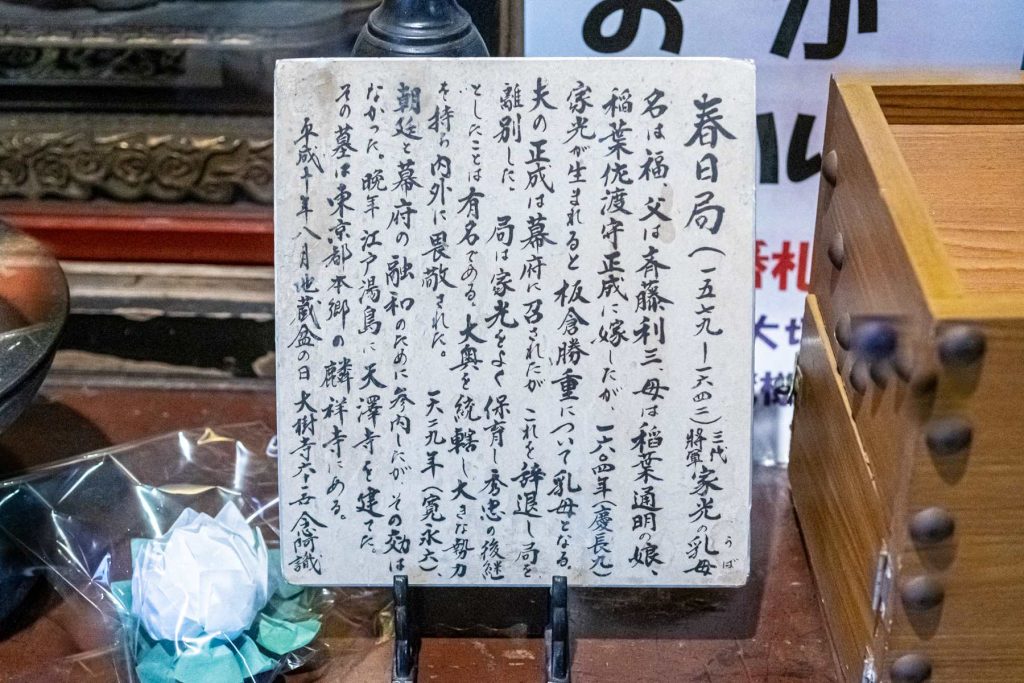 春日局(一五七九ー一六四三)三代将軍家光の乳母
うば
名は福、父は斉藤利三、母は稲葉通明の娘、
稲葉佐渡守正成に嫁したが、一六〇四年(慶長九)
家光が生まれると板倉勝重について乳母となる。
夫の正成は幕府に召されたがこれを辞退し局を
離別した。局は家光をよく保育し秀忠の後継
としたことは有名である。大奥を統轄し大きな勢力
を持ち内外に畏敬された。一六二九年(寛永六)、
朝廷と幕府の融和のために参内したがその効は
なかった。晩年江戸湯島に天澤寺を建てた。
その墓は東京都本郷の麟祥寺にある。
平成十年八月地蔵盆の日 大樹寺六十五
おが
札
大切